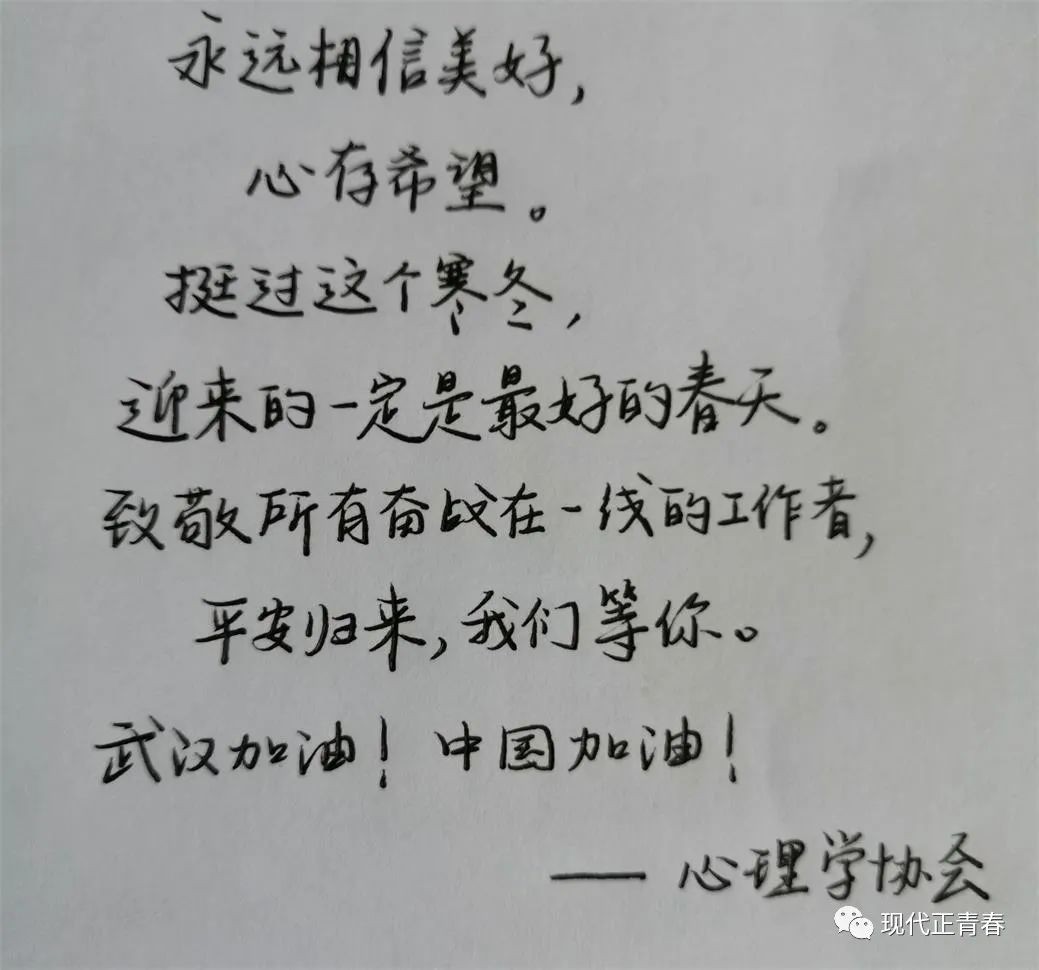 永远相信美好，
心存希望。
挺过这个寒冬，
迎来的一定是最好的春天。
致敬所有奋战在一线的工作者，
平安归来，我们等你。
武汉加油！中国加油！
——心理学协会
现代正青春